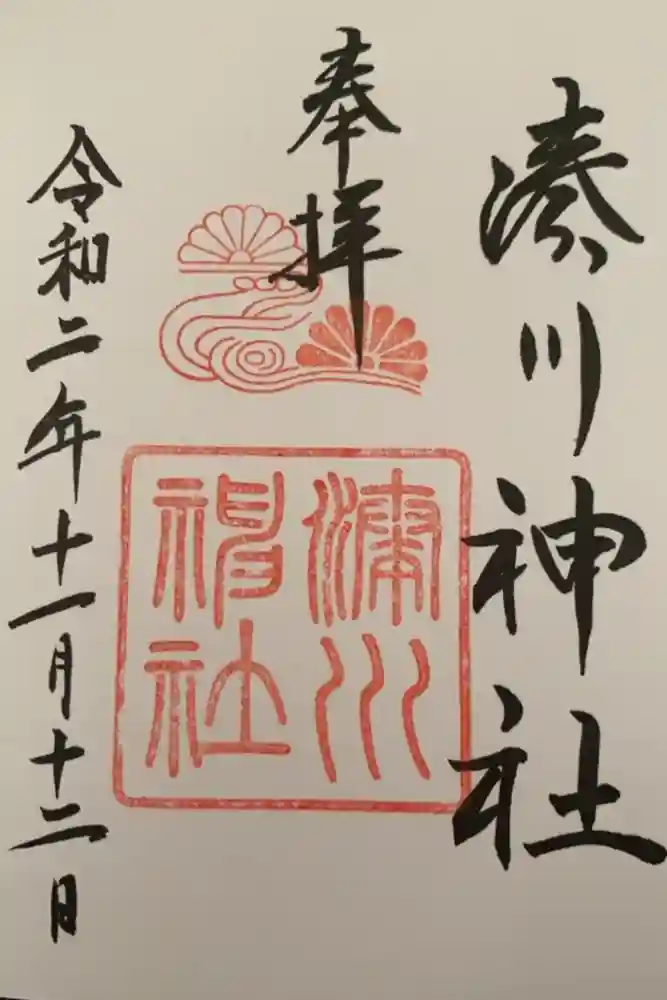 湊川神社
奉拝
湊川
神社
令和二年十一月十二日